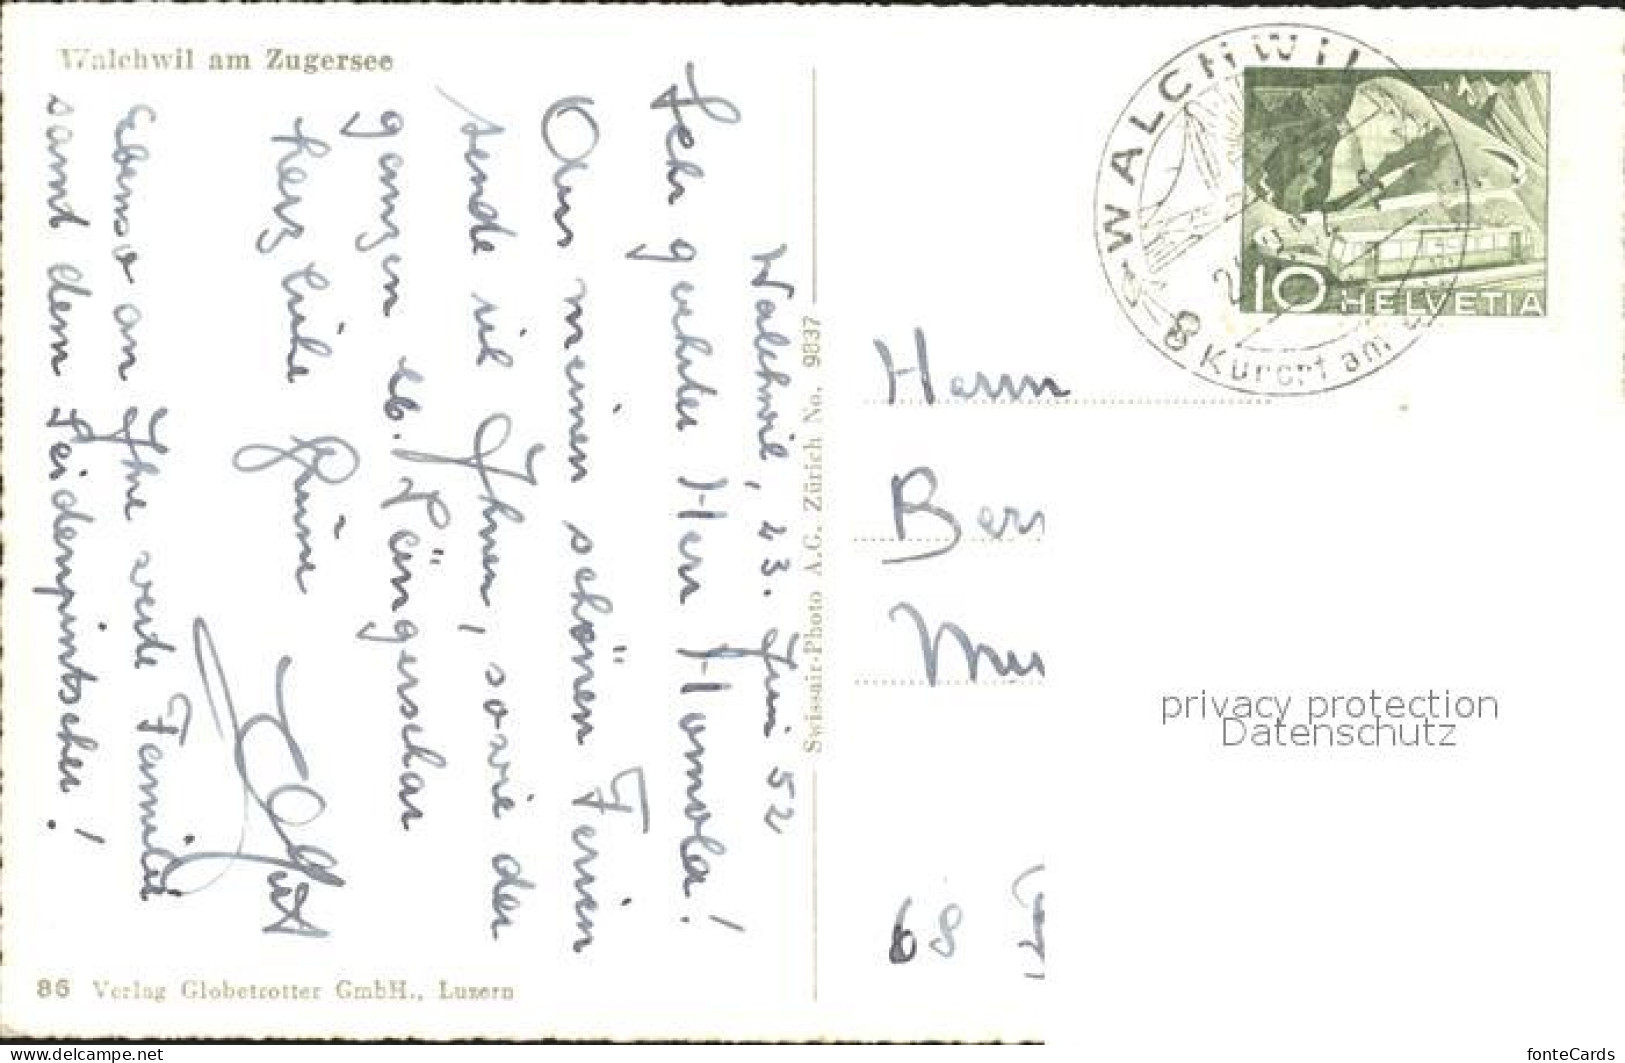 Walchwil am Zugersee
Walchwil, 23. Juni 52
Sehr geehrter Herr Homola!
Aus meinen schönen Ferien
sende ich Ihnen, sowie der
ganzen lb. Sängerschar
herzliche Grüsse
ebenso an Ihre werte Familie
samt dem Seidenpintscher!
86 Verlag Globetrotter GmbH., Luzern
Swissair-Photo A.G. Zürich No. 9837
WALCHWIL
Kurort am
10 HELVETIA
Herrn
Ber
Mu
68
privacy protection
Datenschutz
www.delcampe.net
fonteCards